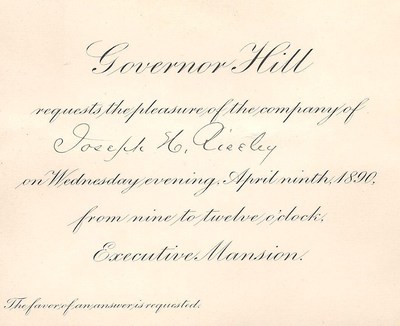 Governor Hill
requests the pleasure of the company of
Joseph H.
on Wednesday evening, April ninth, 1890,
from nine to twelve o'clock.
Executive Mansion.
The favor of an answer is requested.